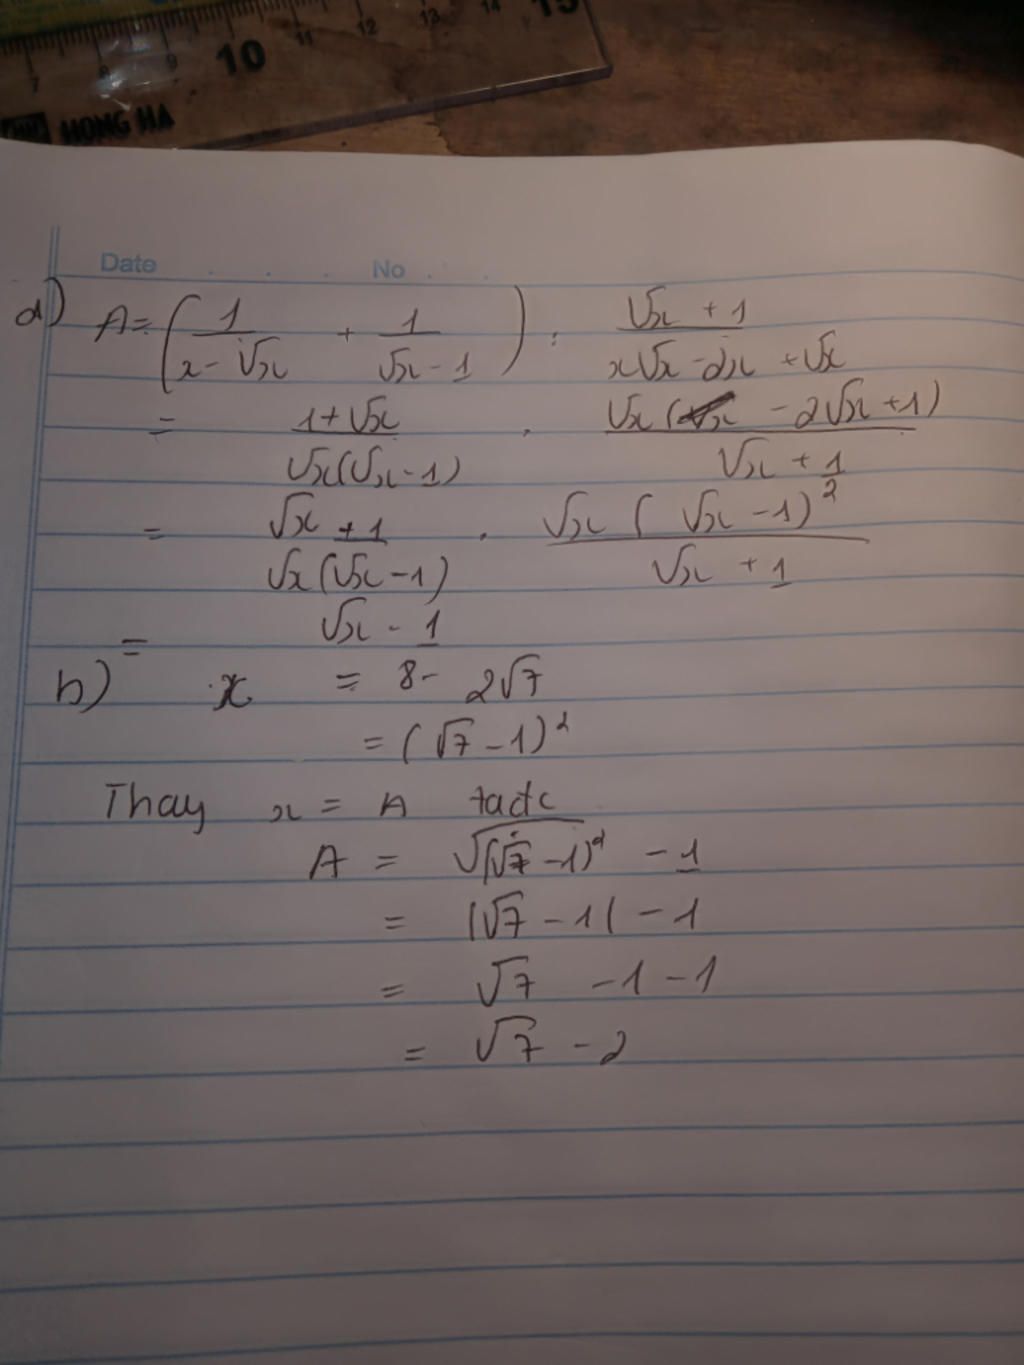 7 8 9 10 11 12 13 14 15
HONG HA
Date No
a) A = (1/(x - √x) + 1/(√x - 1)) : (√x + 1)/(x√x - 2x + √x)
= (1 + √x)/(√x(√x - 1)) . (√x(x - 2√x + 1))/(√x + 1)
= (√x + 1)/(√x(√x - 1)) . (√x(√x - 1)²)/(√x + 1)
= √x - 1
b) x = 8 - 2√7
= (√7 - 1)²
Thay x = A tactc
A = √(√7 - 1)² - 1
= |√7 - 1| - 1
= √7 - 1 - 1
= √7 - 2